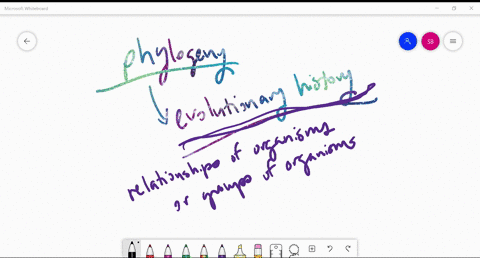 Microsoft Whiteboard
SB
phylogeny
evolutionary history
relationships of organisms
or groups of organisms